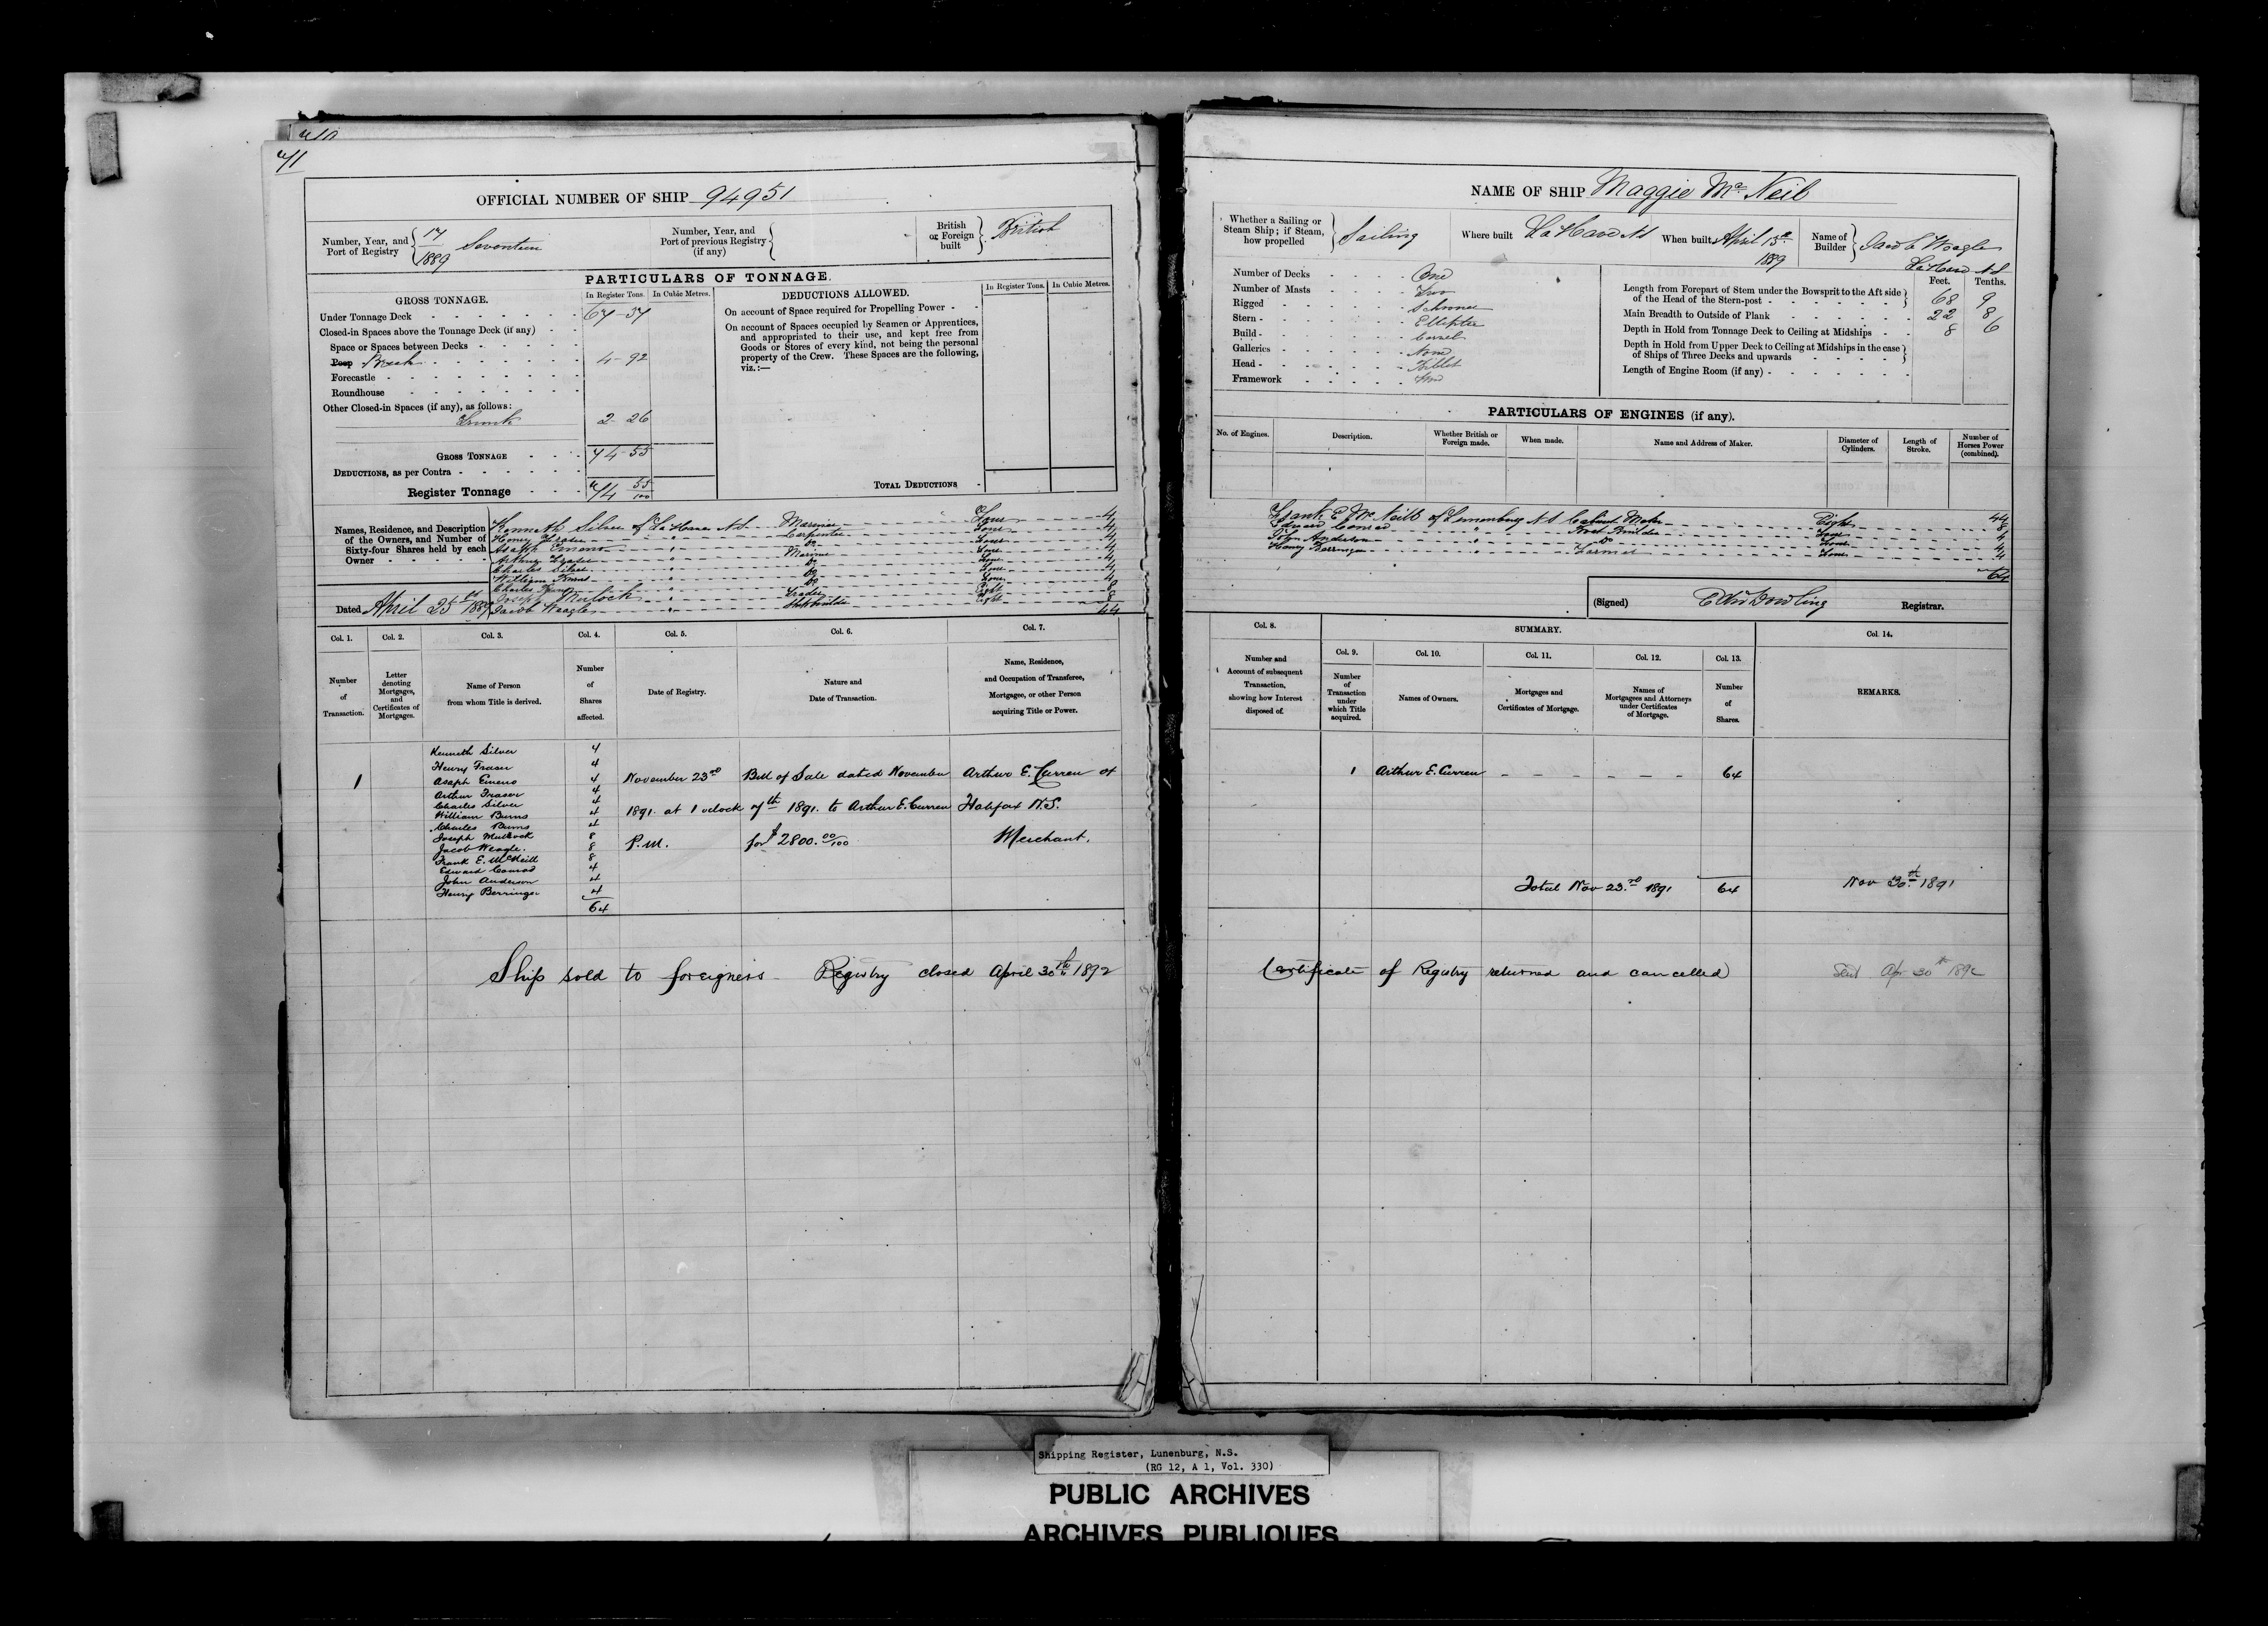 71
OFFICIAL NUMBER OF SHIP 94951
Number, Year, and Port of Registry 17 1889 Seventeen
Number, Year, and Port of previous Registry (if any)
British or Foreign built British
PARTICULARS OF TONNAGE.
GROSS TONNAGE.
In Register Tons. In Cubic Metres.
Under Tonnage Deck 67-37
Closed-in Spaces above the Tonnage Deck (if any)
Space or Spaces between Decks
Poop Break 4-92
Forecastle
Roundhouse
Other Closed-in Spaces (if any), as follows:
Trunk 2-26
GROSS TONNAGE 74-55
DEDUCTIONS, as per Contra
Register Tonnage 74 55/100
DEDUCTIONS ALLOWED.
In Register Tons. In Cubic Metres.
On account of Space required for Propelling Power
On account of Spaces occupied by Seamen or Apprentices,
and appropriated to their use, and kept free from
Goods or Stores of every kind, not being the personal
property of the Crew. These Spaces are the following,
viz.:—
TOTAL DEDUCTIONS
Names, Residence, and Description
of the Owners, and Number of
Sixty-four Shares held by each
Owner
Kenneth Silver of La Have N.S. Mariner Four 4
Henry Fraser " Carpenter Four 4
Asaph Emeno " Do Four 4
Arthur Fraser " Mariner Four 4
Charles Silver " Do Four 4
William Burns " Do Four 4
Charles Burns " Do Four 4
Joseph Mullock " Trader Eight 8
Jacob Weagle " Shipbuilder Eight 8
44
Dated April 25th 1889
Col. 1. Col. 2. Col. 3. Col. 4. Col. 5. Col. 6. Col. 7.
Number of Transaction.
Letter denoting Mortgages, and Certificates of Mortgages.
Name of Person from whom Title is derived.
Number of Shares affected.
Date of Registry.
Nature and Date of Transaction.
Name, Residence, and Occupation of Transferee, Mortgagee, or other Person acquiring Title or Power.
Kenneth Silver 4
Henry Fraser 4
1 Asaph Emeno 4 November 23rd Bill of Sale dated November Arthur E. Curren of
Arthur Fraser 4
Charles Silver 4 1891. at 1 oclock 7th 1891. to Arthur E. Curren Halifax N.S.
William Burns 4
Charles Burns 4
Joseph Mullock 8 P.M. for $2800.00/100 Merchant.
Jacob Weagle. 8
Frank E. McNeill 8
Edward Conrad 4
John Anderson 4
Henry Berringer 4
64
Ship sold to foreigners Registry closed April 30th 1892
NAME OF SHIP Maggie Mc Neil
Whether a Sailing or Steam Ship; if Steam, how propelled Sailing
Where built La Have NS
When built April 15th 1889
Name of Builder Jacob Weagle La Have N.S
Number of Decks One
Number of Masts Two
Rigged Schooner
Stern Elliptic
Build Carvel
Galleries None
Head Billet
Framework
Feet. Tenths.
Length from Forepart of Stem under the Bowsprit to the Aft side of the Head of the Stern-post 68 9
Main Breadth to Outside of Plank 22 8
Depth in Hold from Tonnage Deck to Ceiling at Midships 8 6
Depth in Hold from Upper Deck to Ceiling at Midships in the case of Ships of Three Decks and upwards
Length of Engine Room (if any)
PARTICULARS OF ENGINES (if any).
No. of Engines.
Description.
Whether British or Foreign made.
When made.
Name and Address of Maker.
Diameter of Cylinders.
Length of Stroke.
Number of Horses Power (combined).
44
Frank E McNeill of Lunenburg N S Cabinet Maker Eight 8
Edward Conrad " Boat Builder Four 4
John Anderson " Do Four 4
Henry Berringer " Farmer Four 4
64
(Signed) Edw Dowling Registrar.
Col. 8. SUMMARY. Col. 14.
Col. 9. Col. 10. Col. 11. Col. 12. Col. 13.
Number and Account of subsequent Transaction, showing how Interest disposed of.
Number of Transaction under which Title acquired.
Names of Owners.
Mortgages and Certificates of Mortgage.
Names of Mortgagees and Attorneys under Certificates of Mortgage.
Number of Shares.
REMARKS.
1 Arthur E. Curren 64
Total Nov 23rd 1891 64 Nov 30th 1891
Certificate of Registry returned and cancelled Sent Apr 30th 1892
Shipping Register, Lunenburg, N.S.
(RG 12, A 1, Vol. 330)
PUBLIC ARCHIVES
ARCHIVES PUBLIQUES